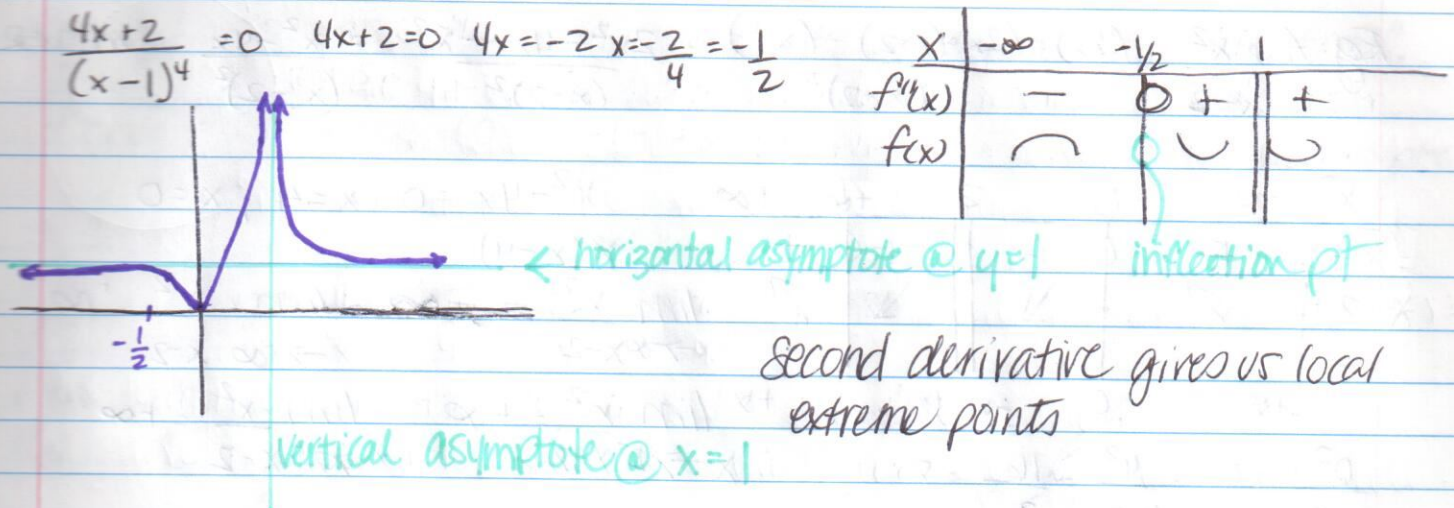 4x+2/(x-1)^4 =0 4x+2=0 4x=-2 x=-2/4 =-1/2
x -∞ -1/2 1
f''(x) - 0 + +
f(x)
< horizontal asymptote @ y=1 inflection pt
-1/2
second derivative gives us local
extreme points
vertical asymptote @ x=1